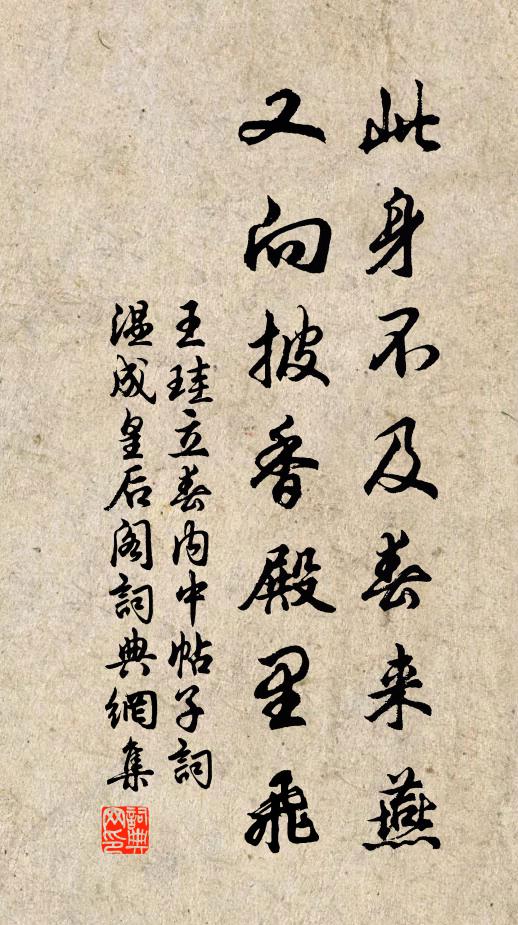 此身不及春来燕
又向披香殿里飛
王珪立春内中帖子詞
温成皇后阁詞典網集
詞典
网印